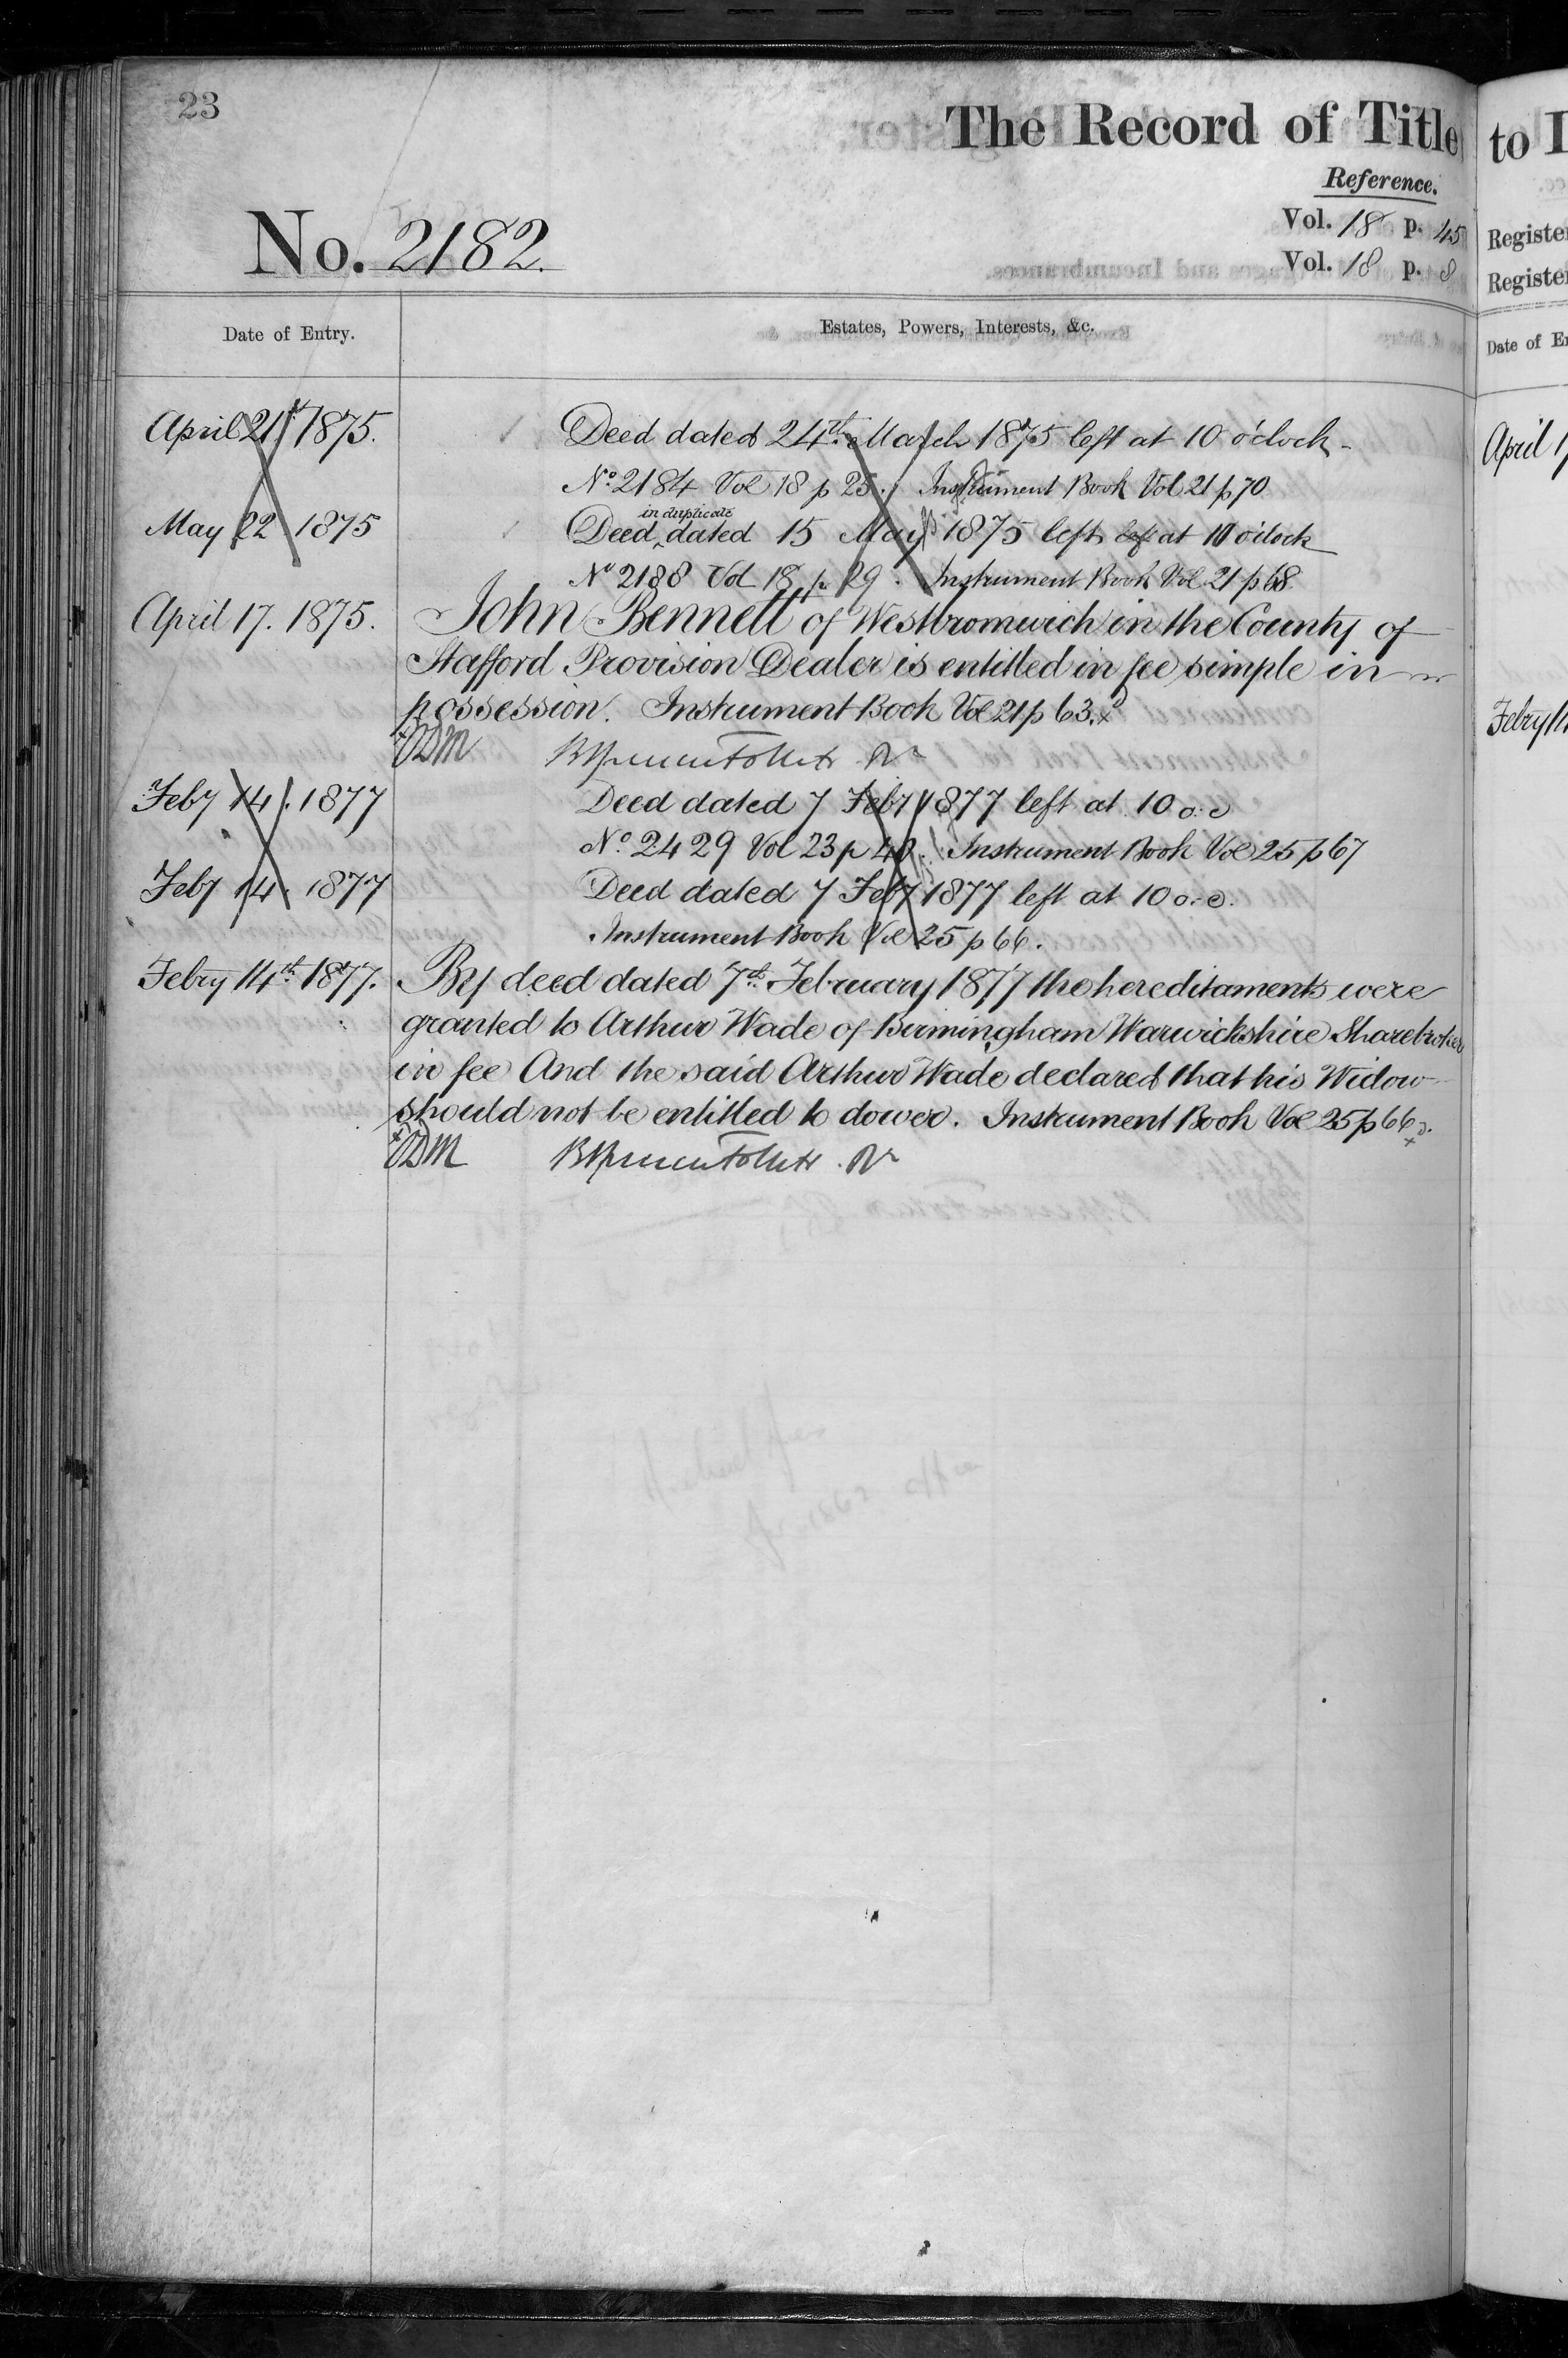 23
The Record of Title to
Reference.
No. 2182.
Vol. 18 p. 45
Vol. 18 p. 8
Date of Entry.
Estates, Powers, Interests, &c.
April 21st 1875.
Deed dated 24th March 1875 left at 10 o'clock
No. 2184 Vol 18 p 25. Instrument Book Vol 21 p 70
May 22 1875
in duplicate
Deed dated 15 May 1875 left left at 10 o'clock
No 2188 Vol 18 p 29. Instrument Book Vol 21 p 68.
April 17. 1875.
John Bennett of Westbromwich in the County of
Stafford Provision Dealer is entitled in fee simple in
possession. Instrument Book Vol 21 p 63.
Feby 14. 1877
Deed dated 7 Feby 1877 left at 10 o.c
No. 2429 Vol 23 p 40. Instrument Book Vol 25 p 67
Feby 14. 1877
Deed dated 7 Feby 1877 left at 10 o.c.
Instrument Book Vol 25 p 66.
Febry 14th 1877.
By deed dated 7th February 1877 the hereditaments were
granted to Arthur Wade of Birmingham Warwickshire Sharebroker
in fee And the said Arthur Wade declared that his Widow
should not be entitled to dower. Instrument Book Vol 25 p 66
Date of
April
Febry